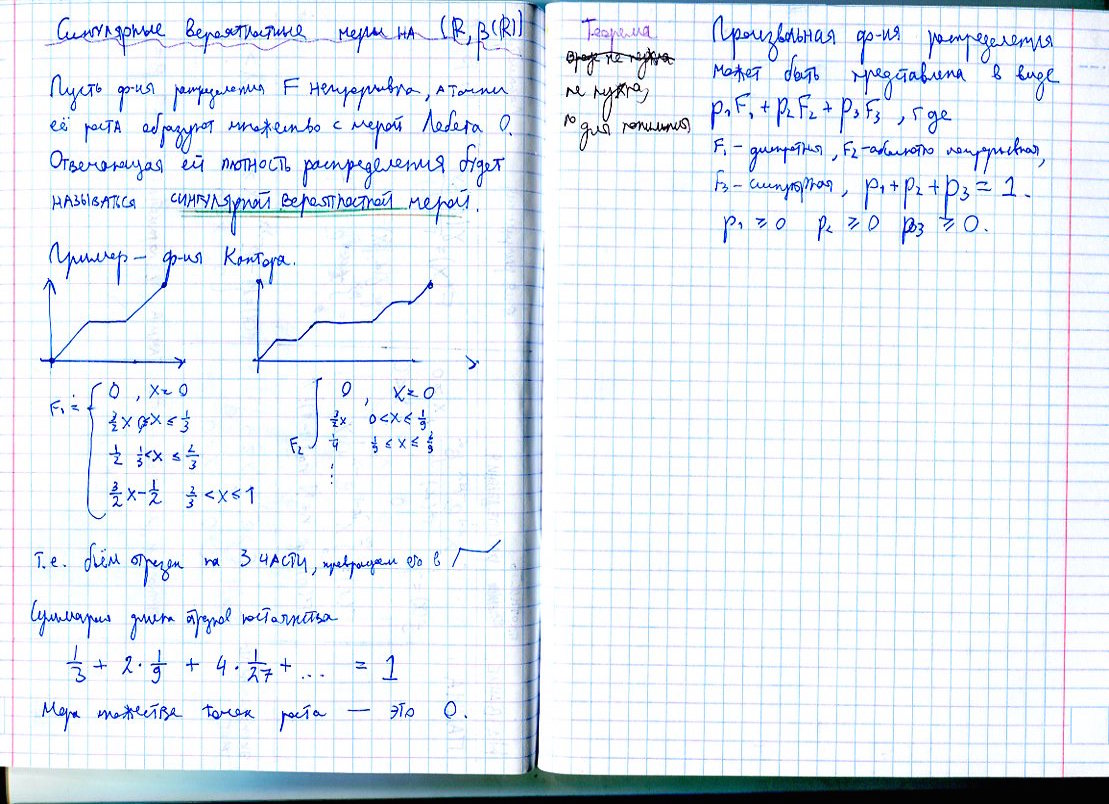 Сингулярные вероятностные меры на (ℝ, β(ℝ))
Пусть ф-ия распределения F непрерывна, а точки
её роста образуют множество с мерой Лебега 0.
Отвечающая ей плотность распределения будет
называться сингулярной вероятностной мерой.
Пример — ф-ия Кантора.
F₁ = { 0 , x = 0
3/2 x 0<x ≤ 1/3
1/2 1/3 < x ≤ 2/3
3/2 x − 1/2 2/3 < x ≤ 1
F₂ { 0 , x = 0
3/2 x 0 < x ≤ 1/9
1/4 1/9 ≤ x ≤ 2/9
⋮
т.е. бьём отрезок на 3 части, превращаем его в
Суммарно длина отрезков постоянства
1/3 + 2·1/9 + 4·1/27 + ... = 1
Мера множества точек роста — это 0.
Теорема
вроде не нужна
не нужна,
но для понимания
Произвольная ф-ия распределения
может быть представлена в виде
p₁F₁ + p₂F₂ + p₃F₃ , где
F₁ – дискретная, F₂ – абсолютно непрерывная,
F₃ – сингулярная, p₁ + p₂ + p₃ = 1.
p₁ ≥ 0 p₂ ≥ 0 p₃ ≥ 0.